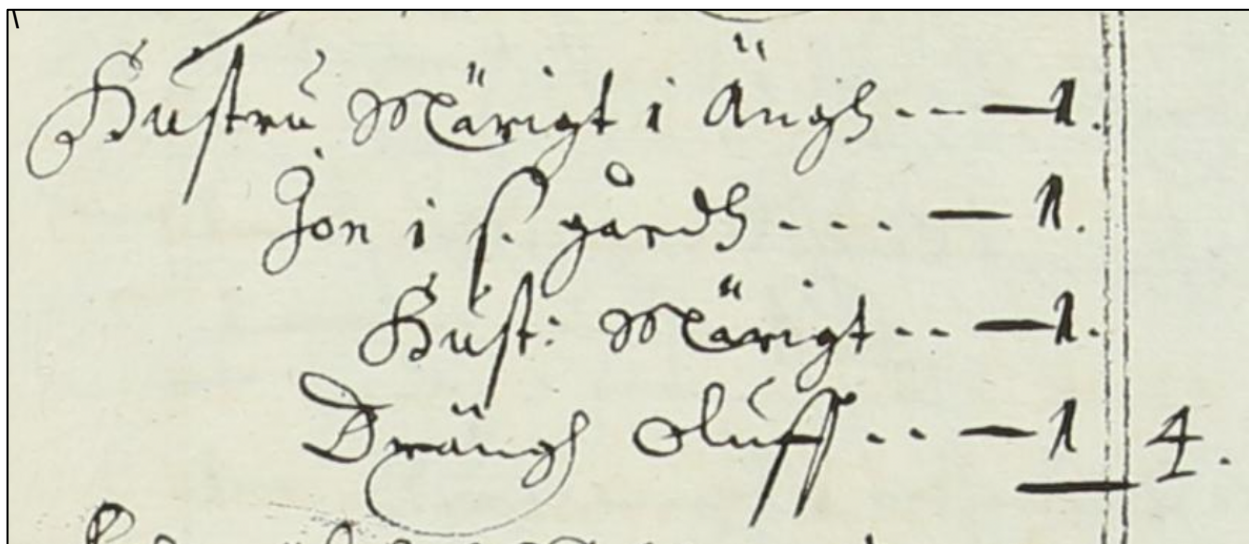 Hustru Märigt i Ängh - - — 1.
Jon i s. gårdh - - - — 1.
Hust: Märigt - - — 1.
Drängh Oluff - - — 1 4.